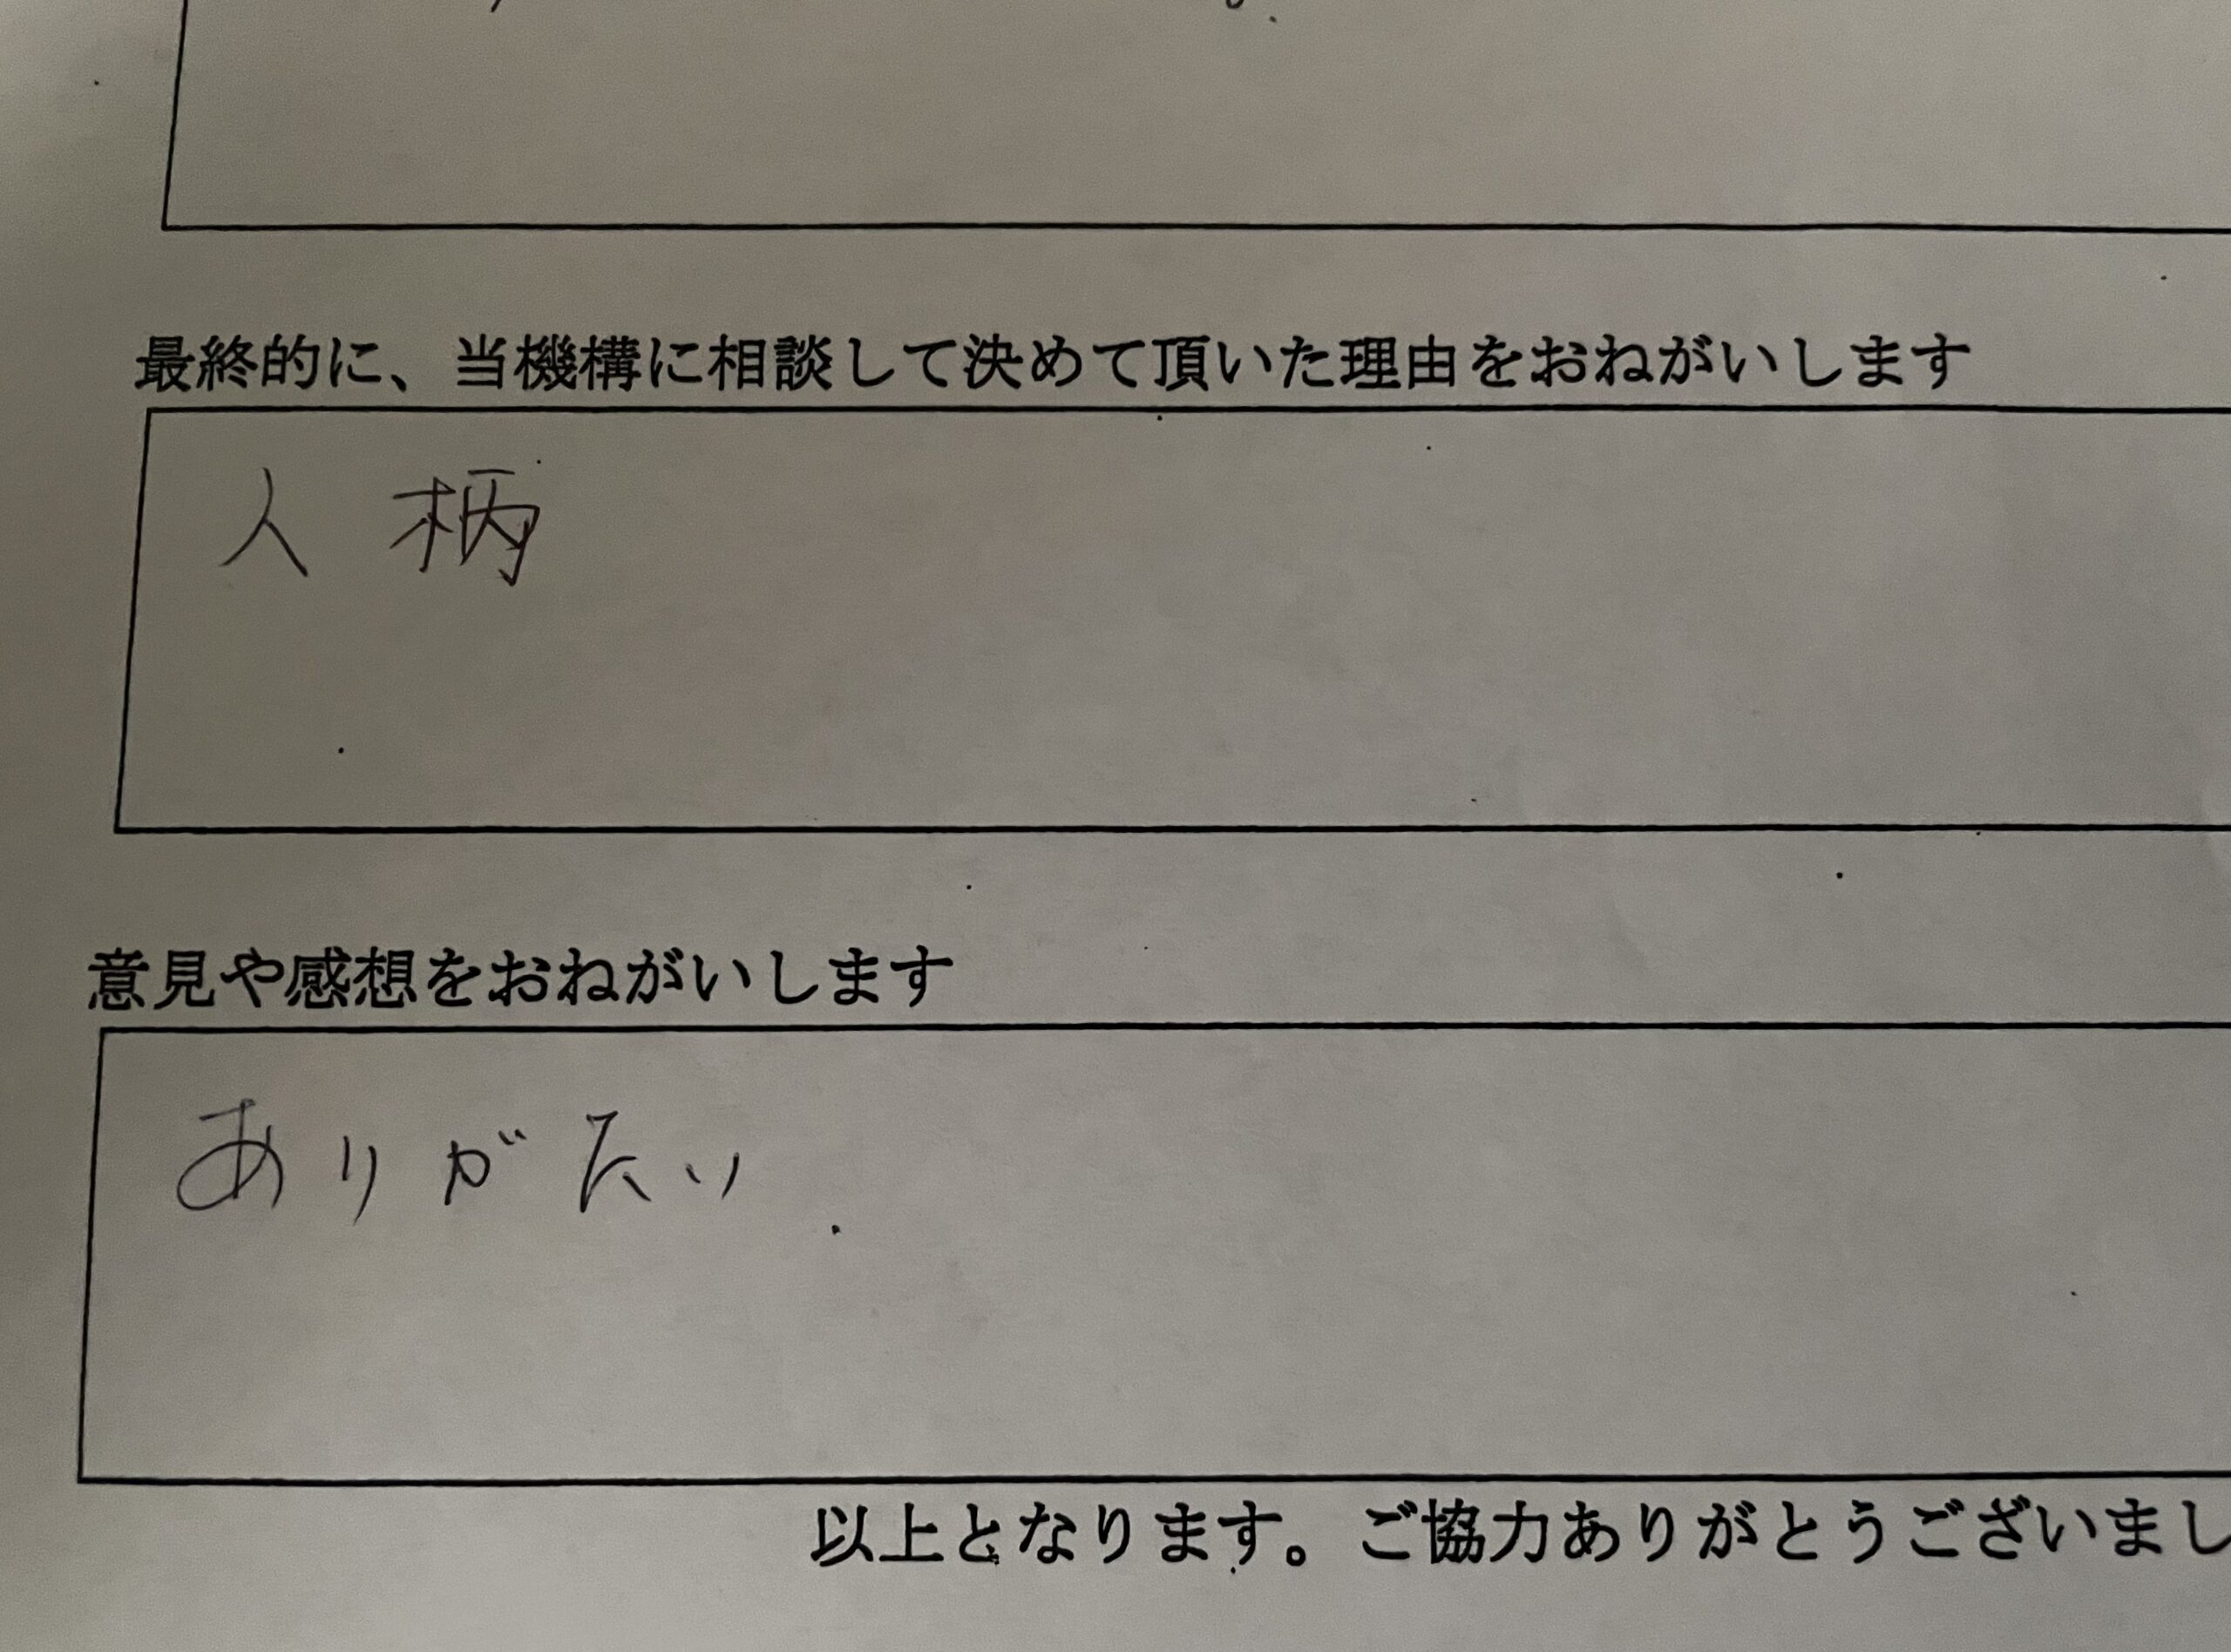 最終的に、当機構に相談して決めて頂いた理由をおねがいします
人柄
意見や感想をおねがいします
ありがたい
以上となります。ご協力ありがとうございまし